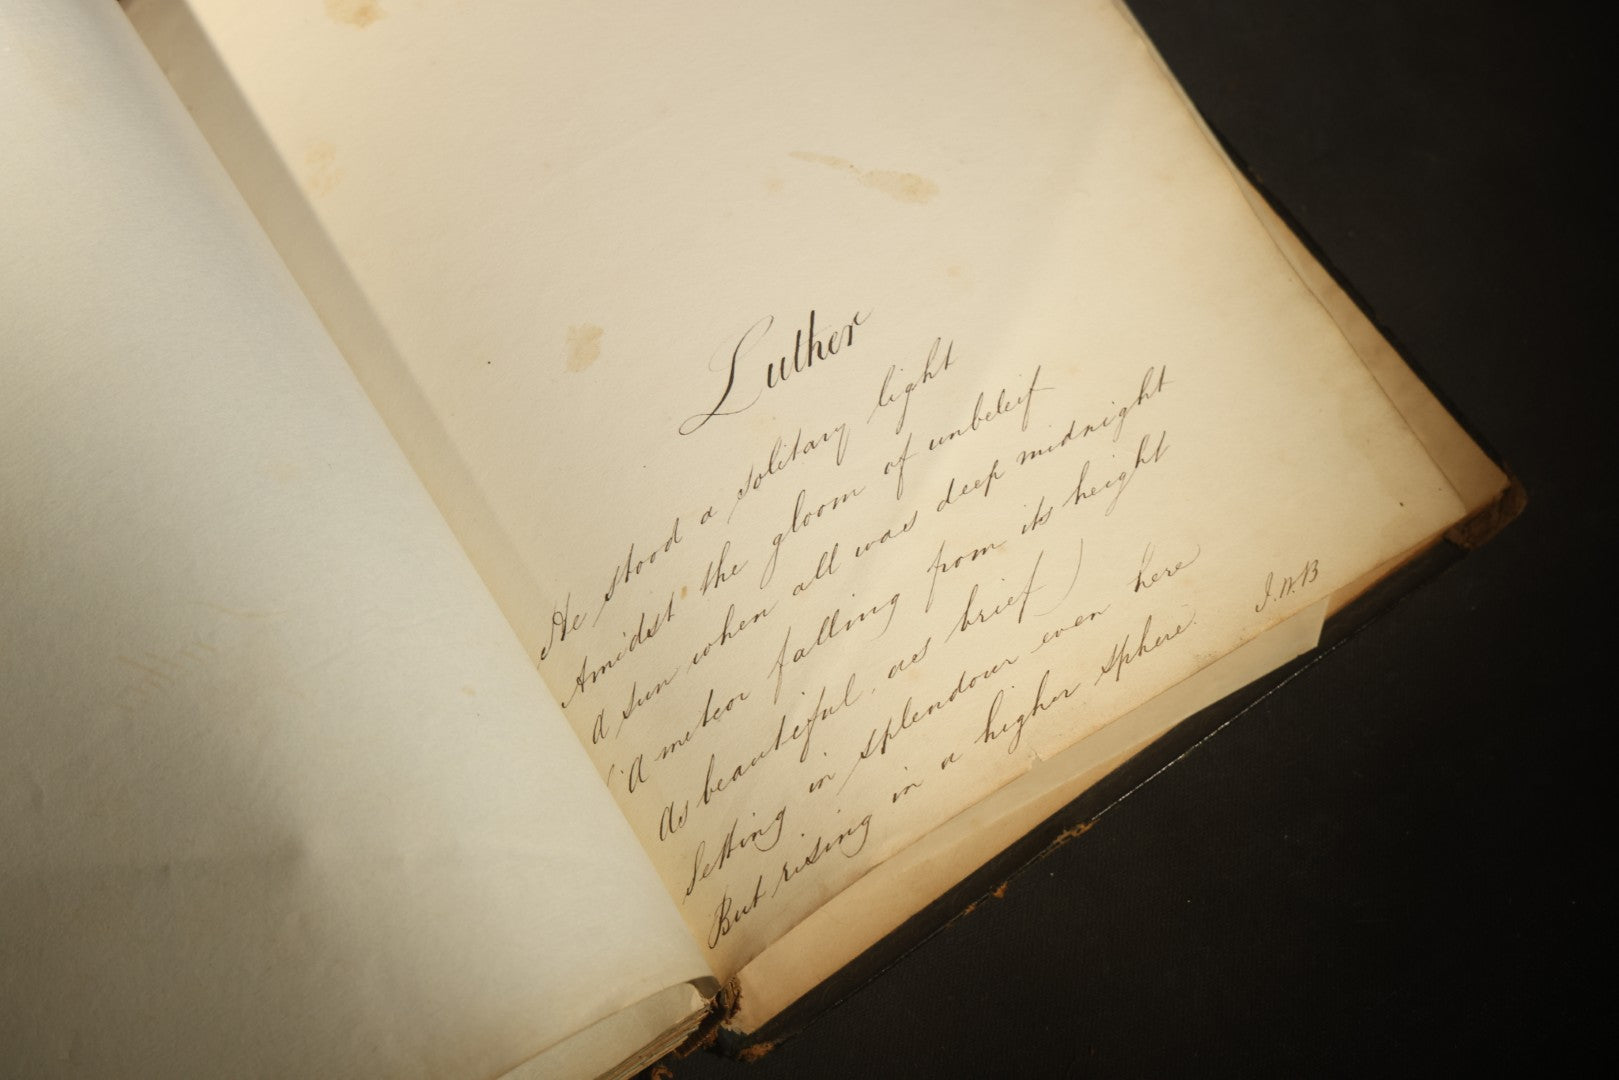 Luther
He stood a solitary light
Amidst the gloom of unbeleif
A sun when all was deep midnight
(A meteor falling from its height
As beautiful, as brief)
Setting in splendour even here
But rising in a higher sphere.
J.W.B